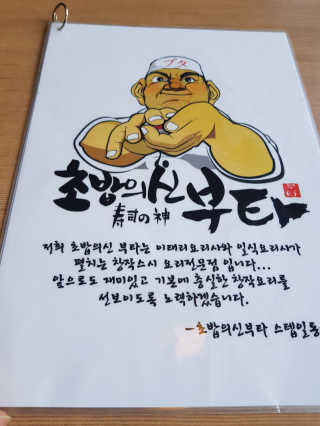 ブタ
초밥의신 부타
寿司の神
저희 초밥의신 부타는 이태리요리사와 일식요리사가
펼치는 창작스시 요리전문점 입니다...
앞으로도 재미있고 기본에 충실한 창작요리를
선보이도록 노력하겠습니다.
-초밥의신부타 스텝일동